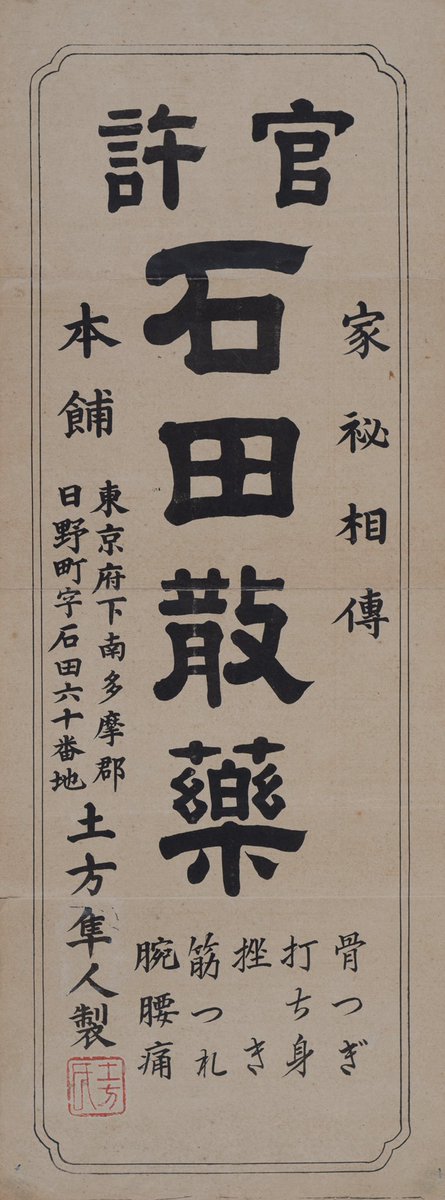 官許
家祕相傳
石田散藥
骨つぎ
打ち身
挫き
筋つれ
腕腰痛
本舖
東京府下南多摩郡
日野町字石田六十番地
土方隼人製
土方氏